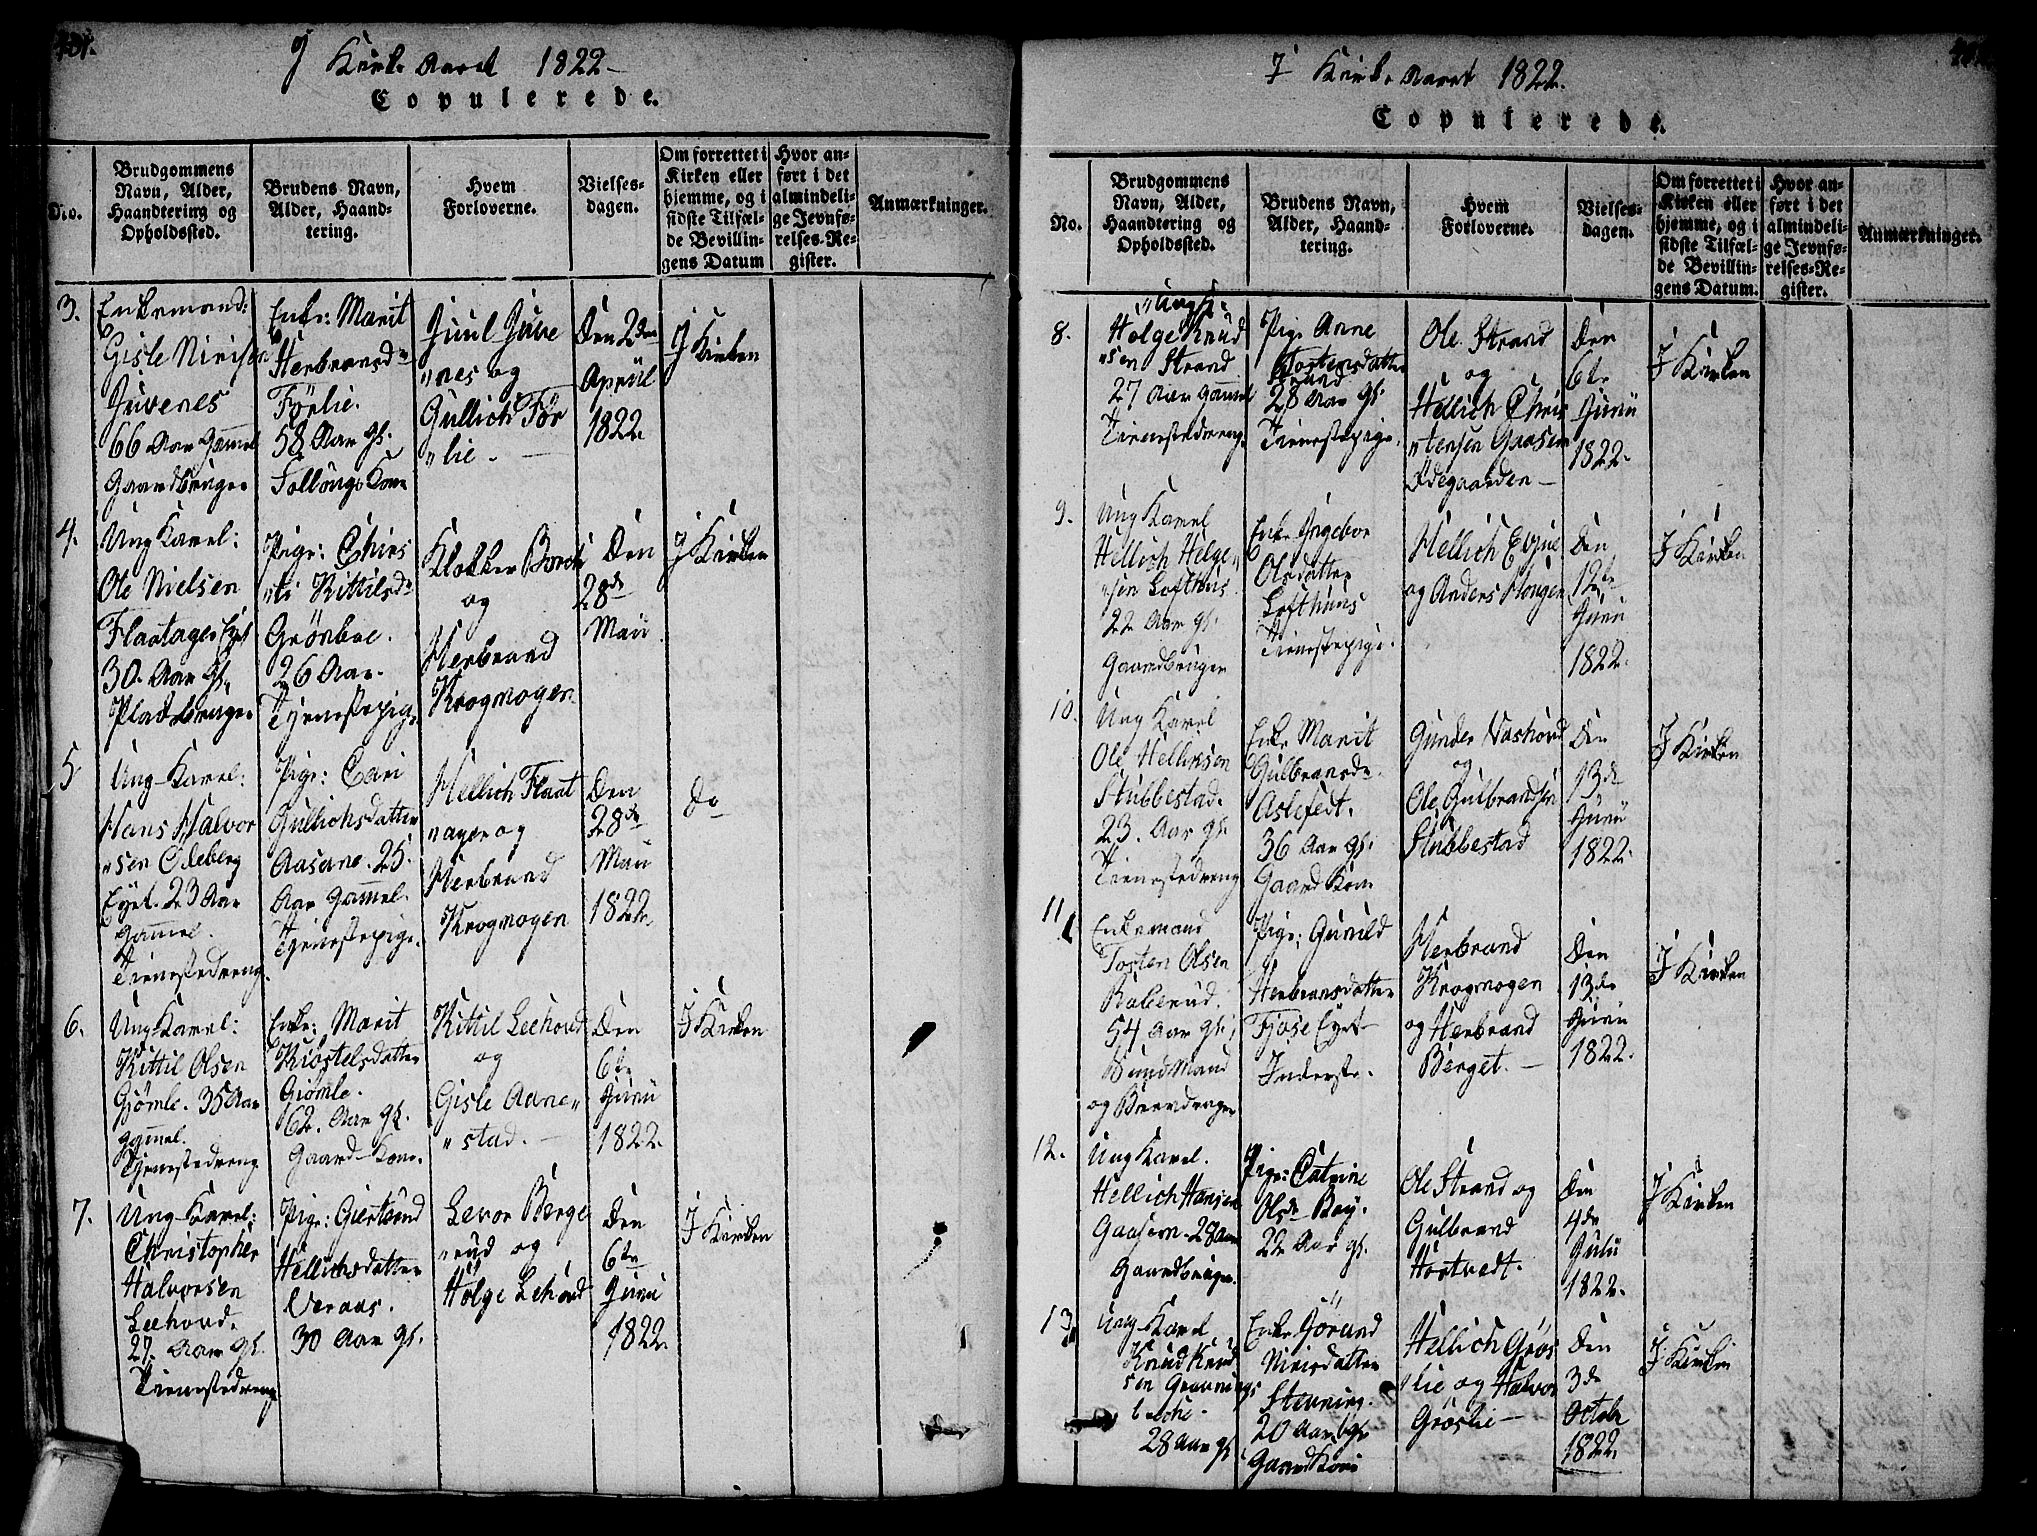 I Kirke Aaret 1822
Copulerede.
No.
Brudgommens
Navn, Alder,
Haandtering og
Opholdssted.
Brudens Navn,
Alder, Haand-
tering.
Hvem
Forloverne.
Vielses-
dagen.
Om forrettet i
Kirken eller
hjemme, og i
sidste Tilfæl-
de Bevillin-
gens Datum
Hvor an-
ført i det
almindeli-
ge Jevnfø-
relses-Re-
gister.
Anmærkninger.
3.
Enkemand:
Gisle
Juvenes
66 Aar Gammel
Gaardbruger
Enke: Marit
Herbrandsdr
Förlie.
58 Aar gl.
Follougs Kone
Juul Juve
"nes og
Gullich För
"lie.
Den 2den
April
1822.
I Kirken
4.
Ung Karel:
Ole Nielsen
Flaatager Eyet
30. Aar gl.
Pladsbruger
Pige: Chirs
"ti Kittilsdr
Grönboe.
26 Aar.
Tjenestepige
Klokker Borch
og
Herbrand
Krogmogen
Den
28de
Maii
I Kirken
5
Ung-Karel:
Hans Halvor
"sen Okeberg
Eyet. 23 Aar
gammel.
Tienestedreng.
Pige: Cari
Gullichsdatter
Aasane. 25.
Aar Gammel.
Tjenestepige.
Hellich Flaat
"ager og
Herbrand
Krogmogen
Den
28de
Maii
1822.
Do
6.
Ung-Karel:
Kittil Olsen
Gjömle. 35 Aar
gammel.
Tjenestedreng
Enke: Marit
Kiöstelsdatter
Giömle.
62. Aar gl.
Gaard-Kone.
Kittil Leehovd
og
Gisle Aane"
"stad.
Den
6te
Junii
1822.
I Kirken
7.
Ung-Karel:
Christopher
Halvorsen
Leehovd.
27. Aar gl.
Tienestedreng
Pige: Giertrud
Hellichsdatter
Veraas.
30 Aar gl.
Levor Berge
"rud og
Holge Lehovd
Den
6te
Junii
1822.
I Kirken
I Kirke Aaret 1822.
Copulerede.
No.
Brudgommens
Navn, Alder,
Haandtering og
Opholdssted.
Brudens Navn,
Alder, Haand-
tering.
Hvem
Forloverne.
Vielses-
dagen.
Om forrettet i
Kirken eller
hjemme, og i
sidste Tilfæl-
de Bevillin-
gens Datum.
Hvor an-
ført i det
almindeli-
ge Jevnfø-
relses-Re-
gister.
Anmærkninger.
8.
Holge Knud
"sen Strand
27 Aar gammel
Tienestedreng.
Pige Anne
Tostensdatter
Strand
28 Aar gl.
Tienestepige.
Ole Strand
og
Hellich Chris
"tensen Gaasen
Ødegaarden
Den
6te
Junii
1822.
I Kirken
9.
Ung Karel
Hellich Helge"
"sen Lofthuus.
22 Aar gl.
Gaardbruger
Enke Ingebor
Olsdatter
Lofthuus
Tienestepige.
Hellich Evjue
og Anders Hougen
Den
12te
Junii
1822.
I Kirken
10.
Ung Karel
Ole Helliksen
Stubbestad.
23. Aar gl.
Tienestedreng
Enke Marit
Gulbransdr.
Aslefedt.
36 Aar gl.
Gaard Kone
Gunder Vashovd
og
Ole Gulbrandsen
Stubbestad
Den
13de
Junii
1822.
I Kirken
11
Enkemand
Tosten Olsen
Rallerud.
54 Aar gl.
og
Pige: Gunild
Herbransdatter
Fjose Eyet
Inderste.
Herbrand
Krogmogen
og Herbrand
Berget.
Den
13de
Junii
1822.
I Kirken
12.
Ung Karel.
Hellich Hansen
Gaasern. 28 Aar
Gaardbruger.
Pige: Catrine
Olsdr Bay.
22 Aar gl.
Ole Strand og
Gulbrand
Hortvedt.
Den
4de
Julii
1822.
I Kirken
13
Ung-Karel
Knud Knud
sen Gravnings
28 Aar gl
Enke Jörund
Nirisdatter
Stevning.
20 Aar gl.
Gaard Kone
Hellich Grös
"lie og Halvor
Gröslie
Den
3de
Octobr
1822
I Kirken